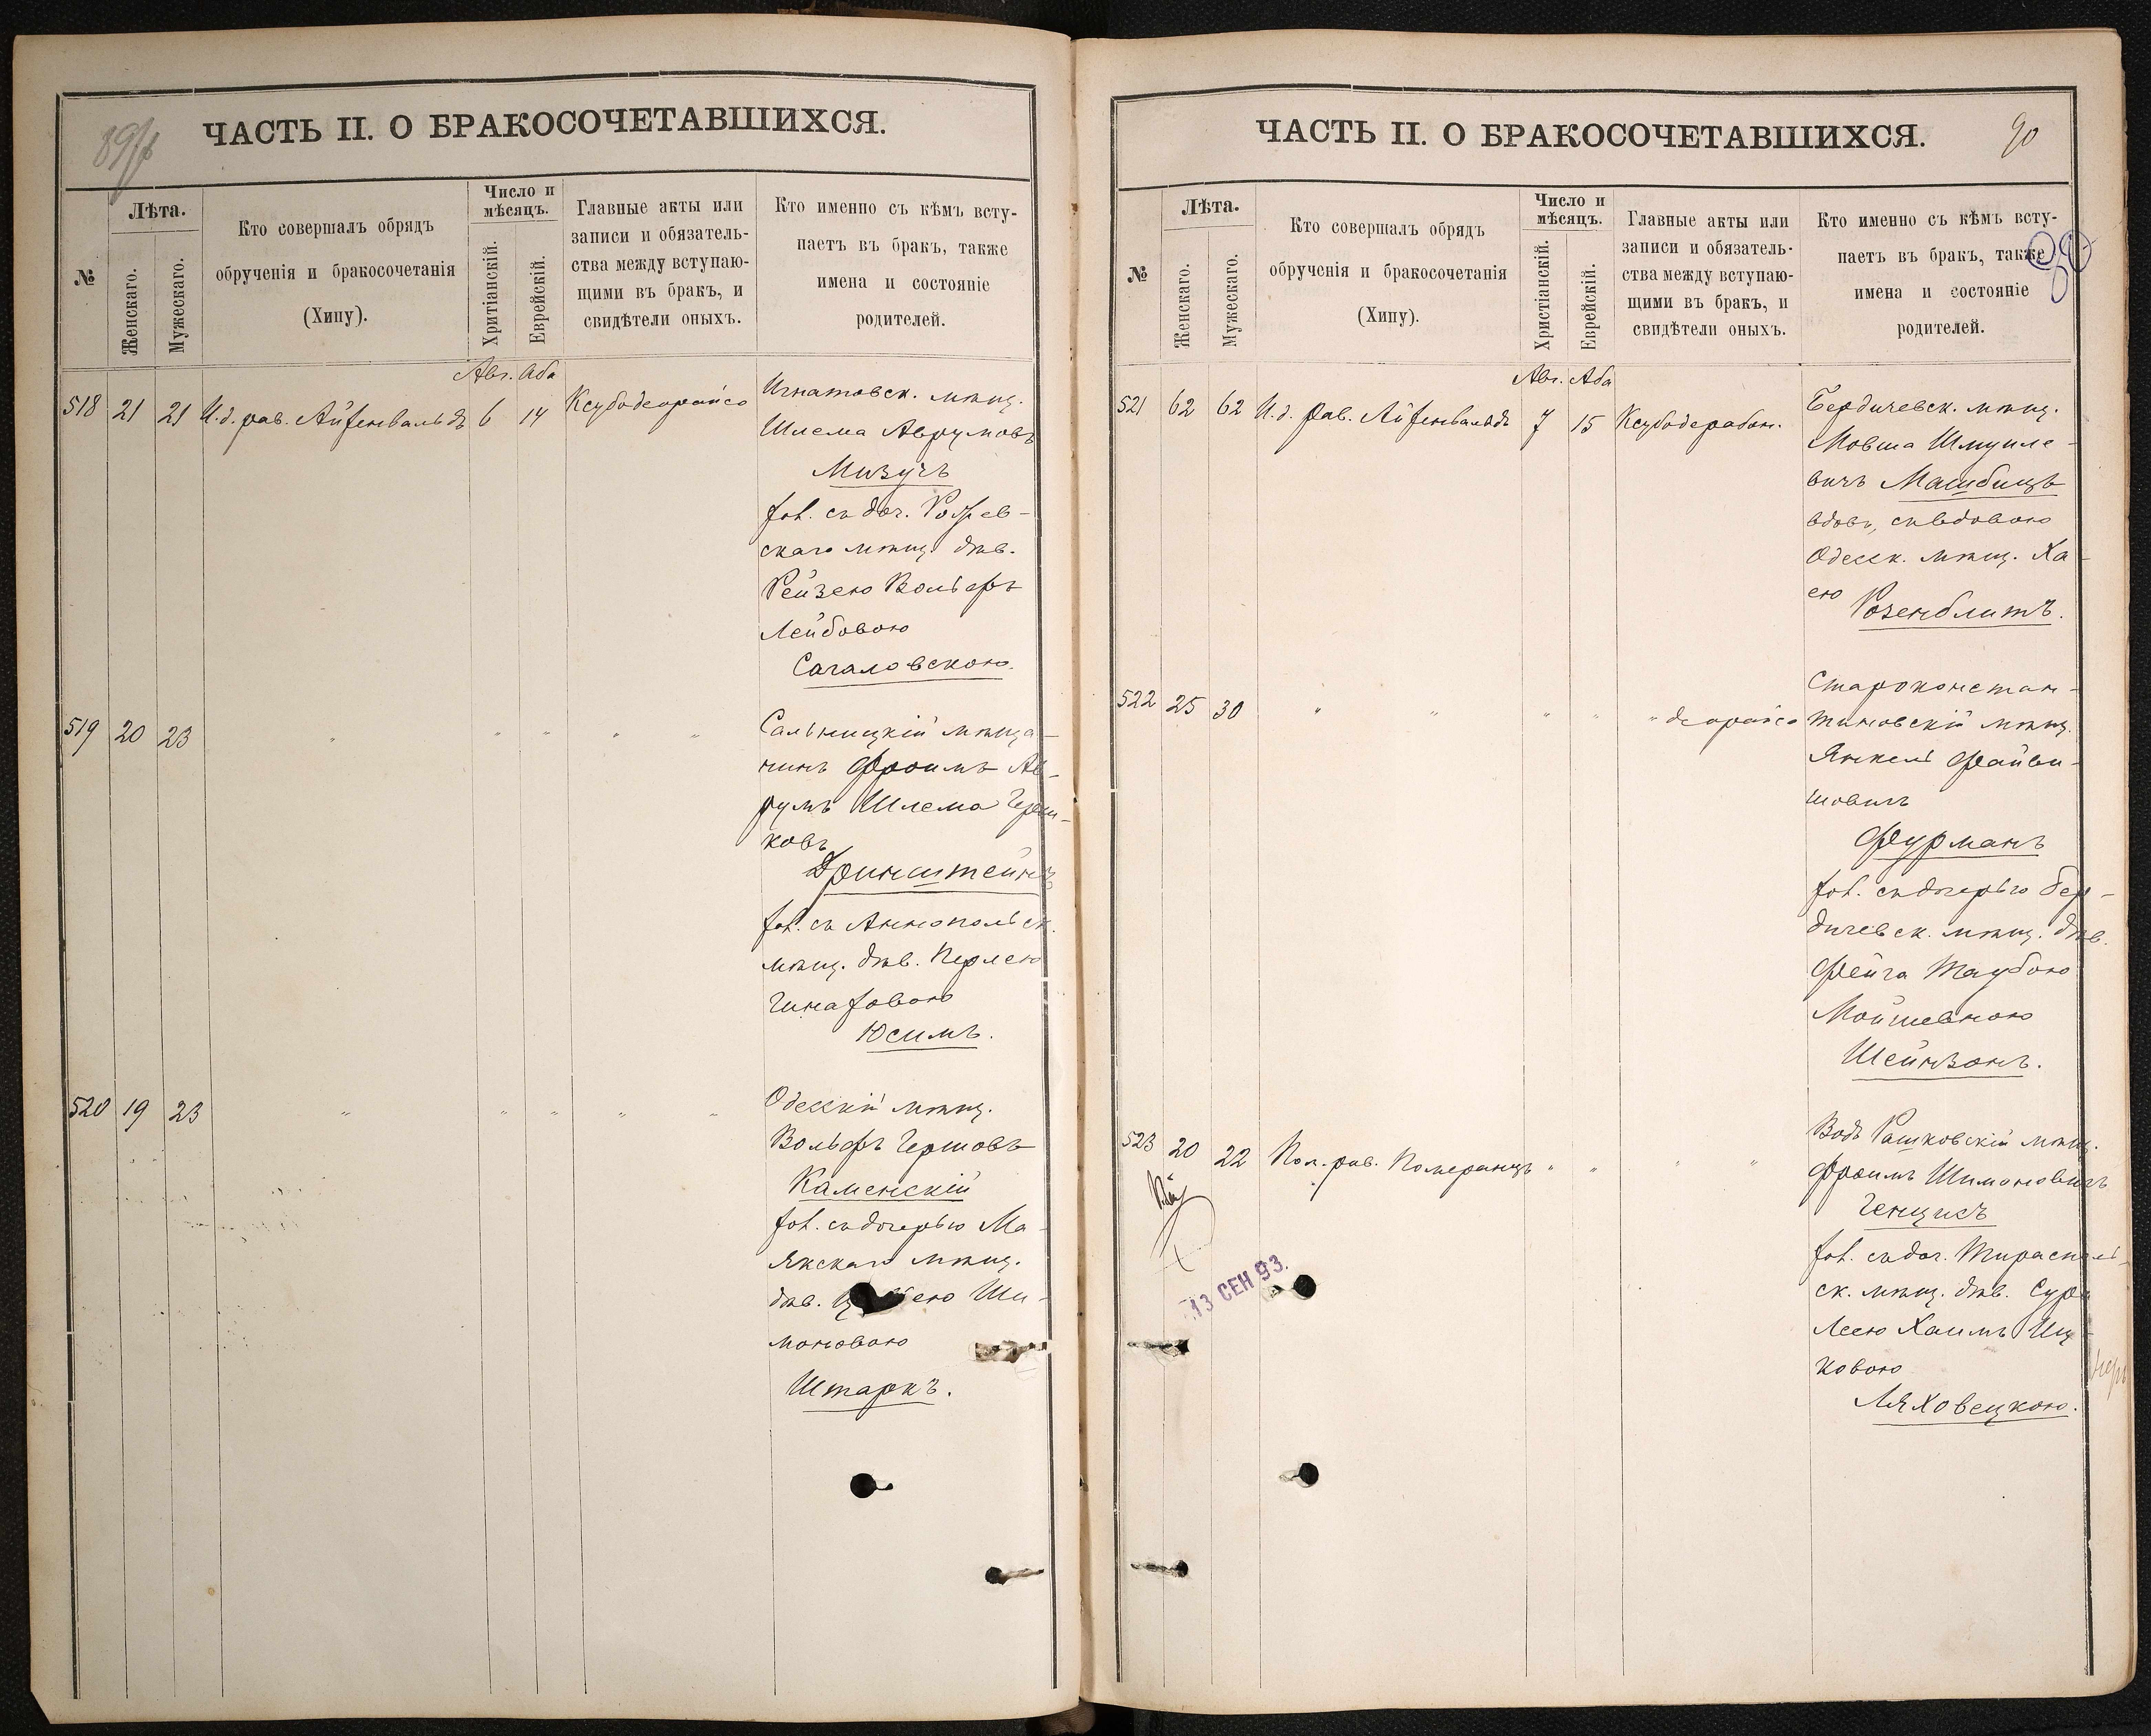 ЧАСТЬ II. О БРАКОСОЧЕТАВШИХСЯ.
№
Лѣта.
Женскаго.
Мужескаго.
Кто совершалъ обрядъ
обрученія и бракосочетанія
(Хипу).
Число и
мѣсяцъ.
Хритіанскій.
Еврейскій.
Главные акты или
записи и обязатель-
ства между вступаю-
щими въ бракъ, и
свидѣтели оныхъ.
Кто именно съ кѣмъ всту-
паетъ въ бракъ, также
имена и состояніе
родителей.
Авг. Аба
518 21 21 И.д. рав. Айзенвальдъ 6 14 Ксубодеорайсо
Игнатовск. мѣщ.
Шлема Аврумовъ
Мизучъ
хол. съ доч.
скаго мѣщ. дѣв.
Рейзею Вольфъ
Лейбовою
Сагаловскою.
519 20 23 " " " " "
Сальницкій мѣща-
нинъ Фроимъ Ав-
румъ Шлема Герш-
ковъ
Гринштейнъ
хол. съ Аннопольск.
мѣщ. дѣв. Перлею
Юсимъ.
520 19 23 " " " " "
Одесскій мѣщ.
Вольфъ Гершовъ
Каменскій
хол. съ дочерью Ма-
якскаго мѣщ.
дѣв. ею Ши-
моновою
Штаркъ.
ЧАСТЬ II. О БРАКОСОЧЕТАВШИХСЯ.
90
№
Лѣта.
Женскаго.
Мужескаго.
Кто совершалъ обрядъ
обрученія и бракосочетанія
(Хипу).
Число и
мѣсяцъ.
Христіанскій.
Еврейскій.
Главные акты или
записи и обязатель-
ства между вступаю-
щими въ бракъ, и
свидѣтели оныхъ.
Кто именно съ кѣмъ всту-
паетъ въ бракъ, также
имена и состояніе
родителей.
Авг. Аба
521 62 62 И.д. рав. Айзенвальдъ 7 15 Ксубодерабон.
Бердичевск. мѣщ.
Мовша Шмуиле-
вичъ Машбицъ
вдов., съ вдовою
Одесск. мѣщ. Ха-
ею Розенблитъ.
522 25 30 " " " " " деорайсо
Староконстан-
тиновскій мѣщ.
Янкель Файви-
шовичъ
Фурманъ
хол. съ дочерью Бер-
дичевск. мѣщ. дѣв.
Фейга Таубою
Мойшевною
Шейнзонъ.
523 20 22 Пом. рав. Померанцъ " " " "
Вадъ Рашковскій мѣщ.
Фроимъ Шимоновичъ
хол. съ доч. Тирасполь-
ск. мѣщ. дѣв. Сура
Леею Хаимъ Иц-
ковою
Ляховецкою.
13 СЕН 93.